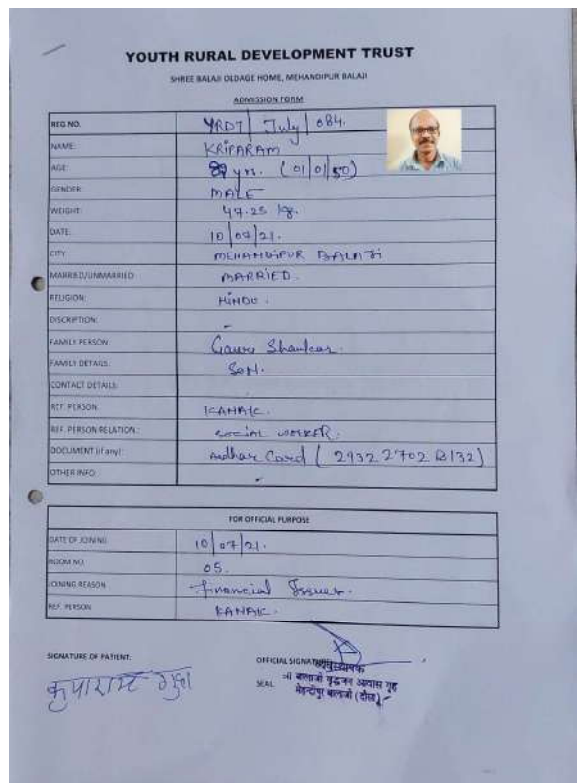 YOUTH RURAL DEVELOPMENT TRUST
SHREE BALAJI OLDAGE HOME, MEHANDIPUR BALAJI
ADMISSION FORM
REG NO. YRDT/July/084.
NAME: KRIPARAM
AGE: yrs. (01/01/50)
GENDER: MALE
WEIGHT: 47.25 kg.
DATE: 10/07/21.
CITY: MEHANDIPUR BALAJI
MARRIED/UNMARRIED: MARRIED.
RELIGION: HINDU.
DISCRIPTION: -
FAMILY PERSON: Gauri Shankar.
FAMILY DETAILS: SON.
CONTACT DETAILS:
REF. PERSON: KANAK.
REF. PERSON RELATION.: SOCIAL WORKER.
DOCUMENT (if any): Aadhar Card (2932 2702 )
OTHER INFO: -
FOR OFFICIAL PURPOSE
DATE OF JOINING: 10/07/21.
ROOM NO. 05.
JOINING REASON: Financial Issues.
REF. PERSON KANAK.
SIGNATURE OF PATIENT:
OFFICIAL SIGNATURE
कृपाराम
SEAL श्री बालाजी वृद्धजन आवास गृह
मेहन्दीपुर बालाजी (दौसा)